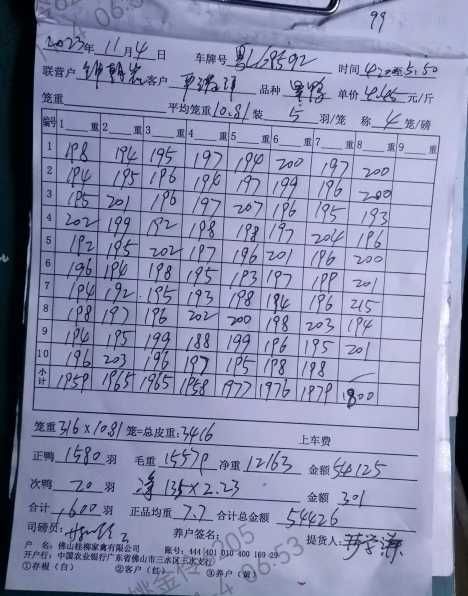 99
2023年 11月 4日 车牌号 时间 4.20至5.50
联营户 客户 品种 单价 4.45 元/斤
笼重 平均笼重 10.81 装 5 羽/笼 称 4 笼/磅
编号 1 重 2 重 3 重 4 重 5 重 6 重 7 重 8 重 9 重
1 198 194 195 197 194 200 197 200
2 194 195 196 194 197 199 196 200
3 195 201 196 197 207 196 195 193
4 202 199 192 198 198 197 204 196
5 192 195 202 197 196 201 196 200
6 196 194 198 195 193 197 199 201
7 194 192 195 193 198 194 196 215
8 198 197 196 202 200 198 203 194
9 194 195 199 188 199 196 195 201
10 196 203 196 197 195 198 198
小计 1959 1965 1965 1958 1977 1976 1979 1800
笼重 316 × 10.81 笼=总皮重: 3416
上车费
正鸭 1580 羽 毛重 15579 净重 12163 金额 54125
次鸭 20 羽 净 135 × 2.23 金额 301
合计 1600 羽 正品均重 7.7 合计总金额 54426
司磅员: 养户签名: 提货人:
户 名: 佛山桂柳家禽有限公司 账号: 444 401 010 400 169 29
开户行: 中国农业银行广东省佛山市三水区三水支行
①存根(白) ②客户(红) ③养户(黄)